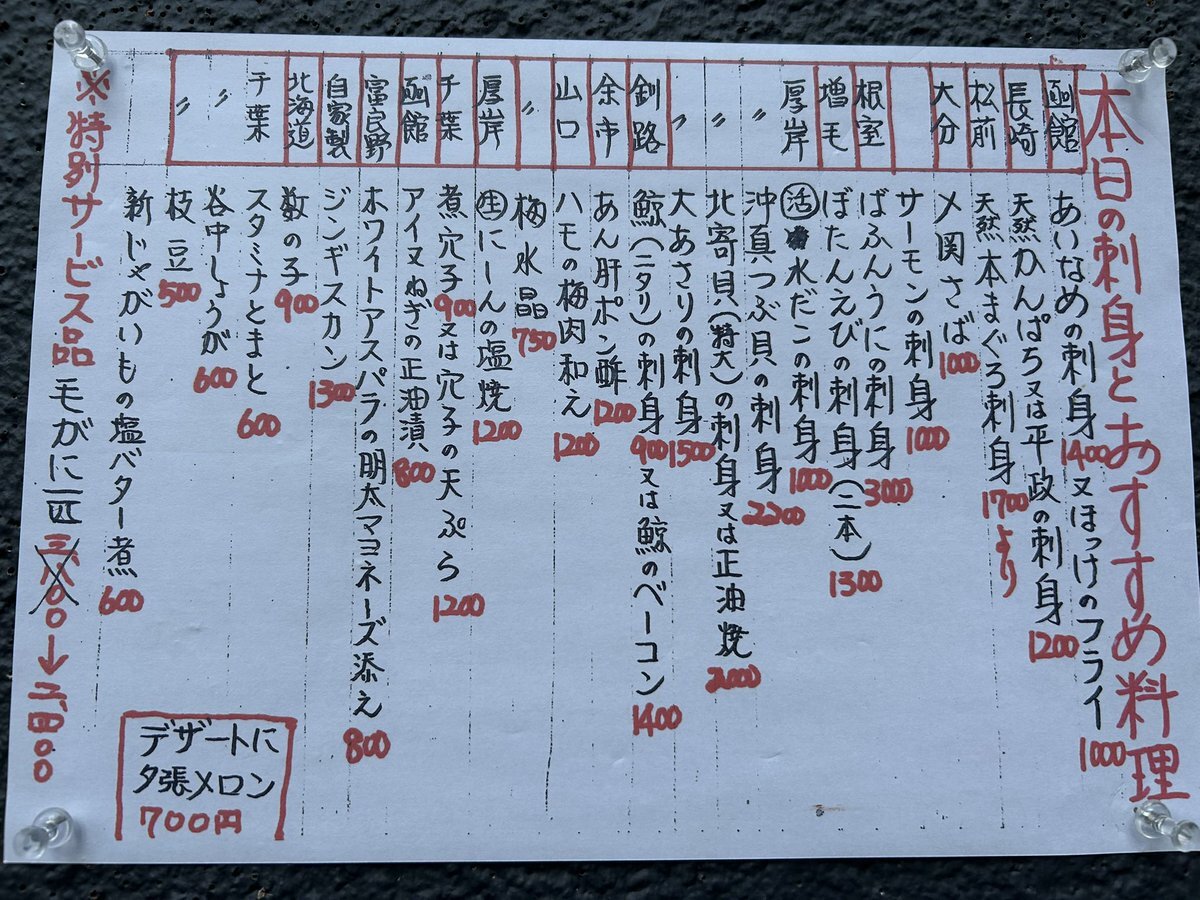 本日の刺身とおすすめ料理
函館 あいなめの刺身1400又はほっけのフライ1000
長崎 天然かんぱち又は平政の刺身1200
松前 天然本まぐろ刺身1700より
大分 〆関さば1000
サーモンの刺身1000
根室 ばふんうにの刺身3000
増毛 ぼたんえびの刺身(二本)1300
厚岸 活水だこの刺身1000
〃 沖真つぶ貝の刺身2200
〃 北寄貝(特大)の刺身又は正油焼2000
〃 大あさりの刺身1500
釧路 鯨(ニタリ)の刺身900又は鯨のベーコン1400
余市 あん肝ポン酢1200
山口 ハモの梅肉和え1200
〃 梅水晶750
厚岸 生にしんの塩焼1200
千葉 煮穴子900又は穴子の天ぷら1200
函館 アイヌねぎの正油漬800
富良野 ホワイトアスパラの明太マヨネーズ添え800
自家製 ジンギスカン1300
北海道 数の子900
千葉 スタミナとまと600
〃 谷中しょうが600
〃 枝豆500
新じゃがいもの塩バター煮600
※特別サービス品 毛がに一匹 三八〇〇→二、四〇〇
デザートに
夕張メロン
700円